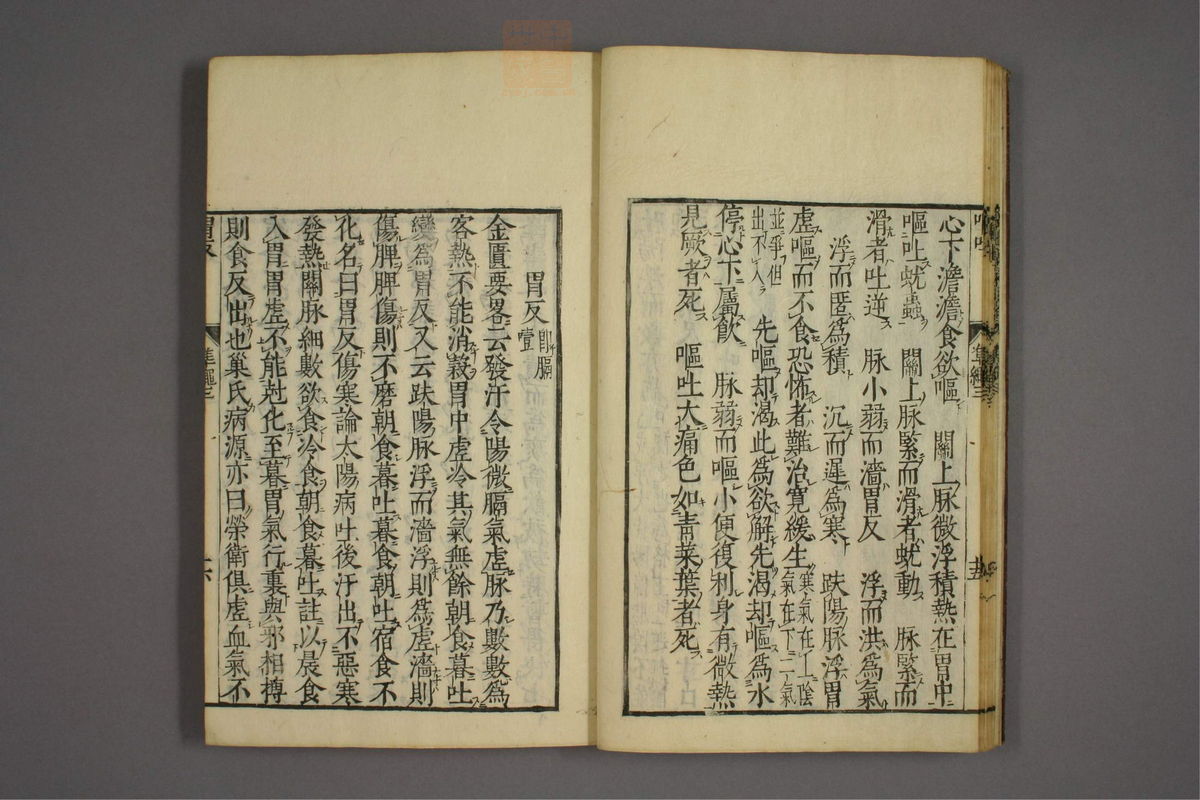 心下澹澹食欲嘔　關上脉微浮積熱在胃中
嘔吐蚘蟲　關上脉緊而滑者蚘動　脉緊而
滑者吐逆　脉小弱而濇胃反　浮而洪爲氣
浮而匿爲積　沉而遲爲寒　趺陽脉浮胃
虛嘔而不食恐怖者難治寛緩生寒氣在上陰氣在下二氣
並爭但出不入　先嘔却渴此爲欲解先渴却嘔爲水
停心下屬飲　脉弱而嘔小便復利身有微熱
見厥者死　嘔吐大痛色如青菜葉者死
胃反
金匱要畧云發汗令陽微膈氣虛脉乃數數爲
客熱不能消穀胃中虛冷其氣無餘朝食暮吐
變爲胃反又云趺陽脉浮而濇浮則爲虛濇則
傷脾脾傷則不磨朝食暮吐暮食朝吐宿食不
化名曰胃反傷寒論太陽病吐後汗出不惡寒
發熱關脉細數欲食冷食朝食暮吐註以晨食
入胃胃虛不能尅化至暮胃氣行裏與邪相摶
則食反出也巢氏病源亦曰榮衛俱虛血氣不